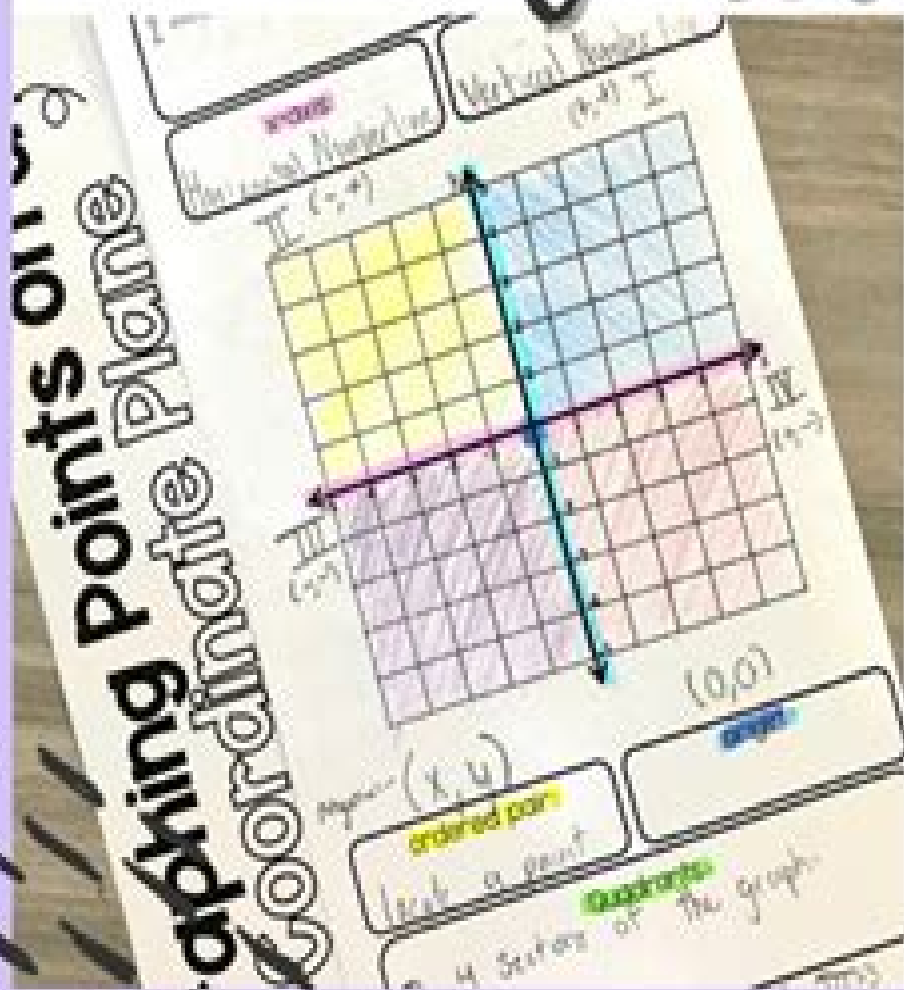 Points on
Coordinate Plane
x-axis
Horizontal Numberline
Vertical Number
I
II (-,+)
III
(-,-)
IV
(+,-)
(0,0)
origin
(x,y)
ordered pair
a point
Quadrants
4 Sections of the graph.